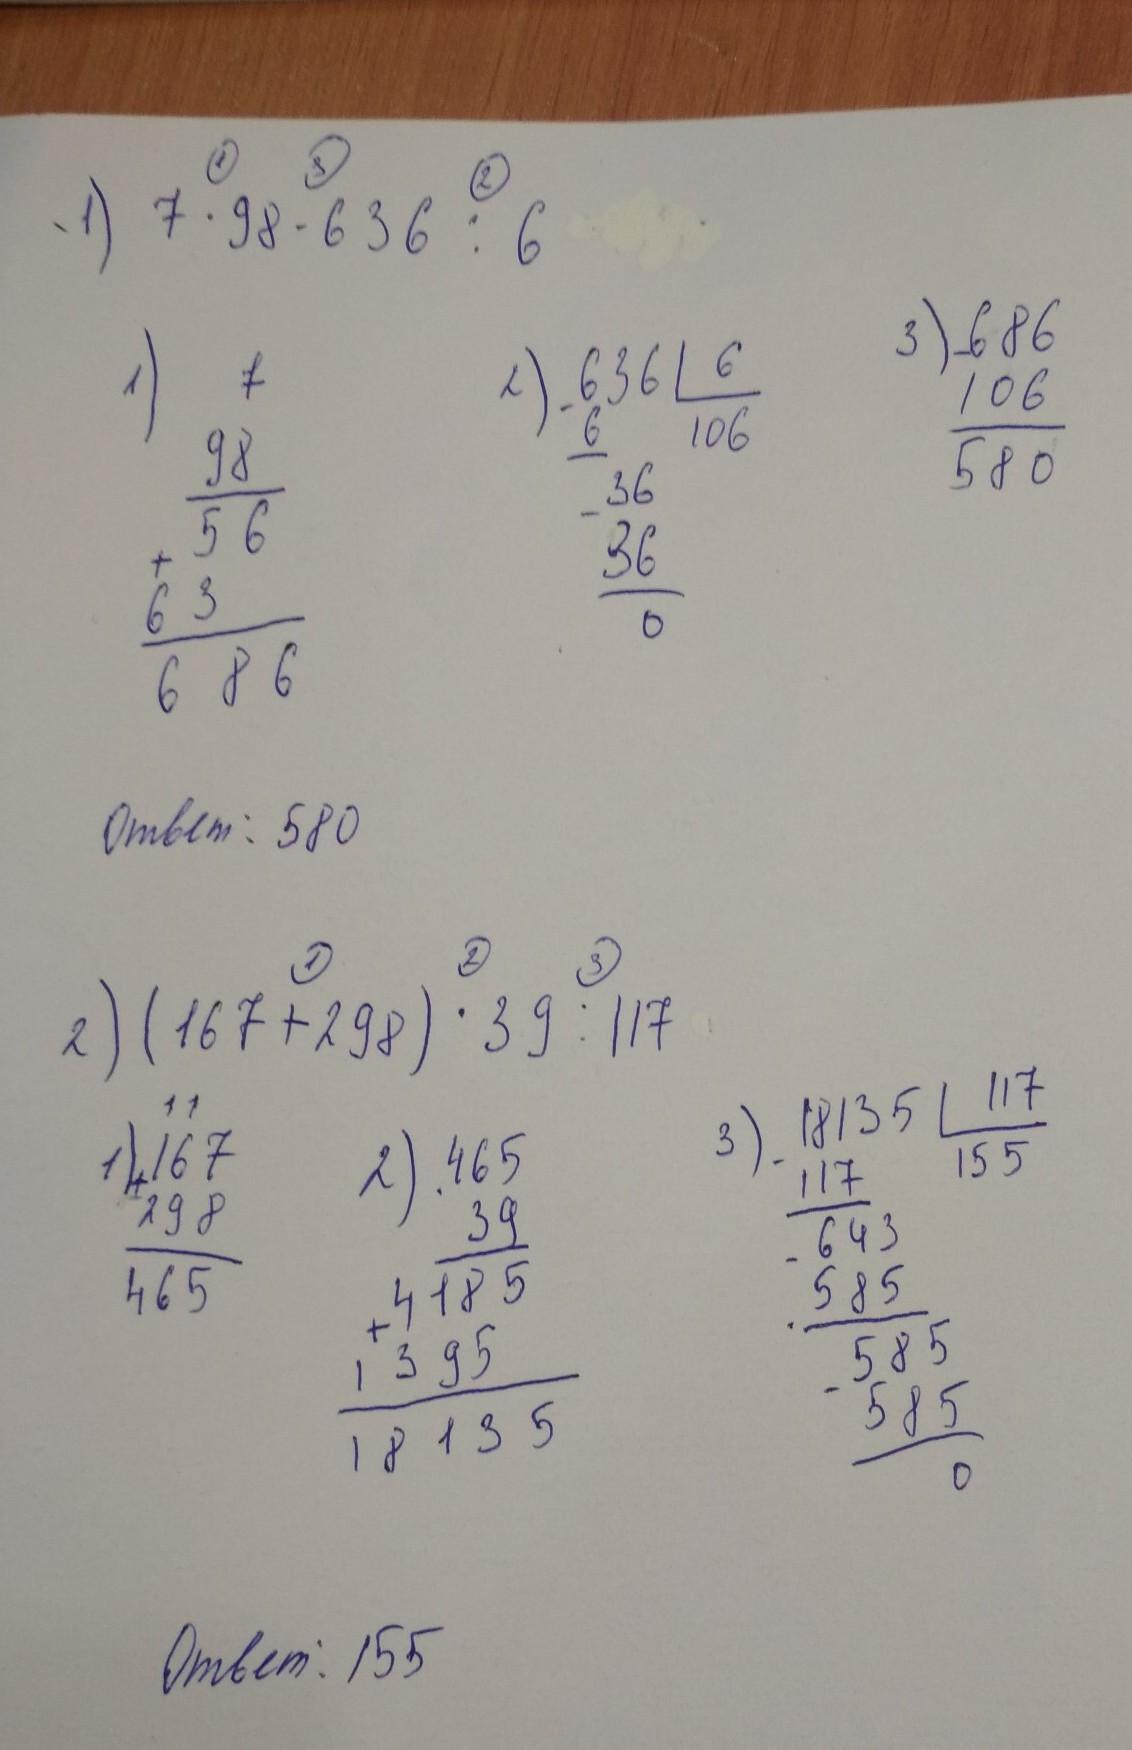 ① ③ ②
1) 7 · 98 - 636 : 6
1) 7
98
56
+
63
686
2) - 636 6
6 106
- 36
36
0
3) - 686
106
580
Ответ: 580
① ② ③
2) (167 + 298) · 39 : 117
11
1) + 167
298
465
2) . 465
39
4185
+
1395
18135
3) - 18135 117
117 155
- 643
585
- 585
585
0
Ответ: 155